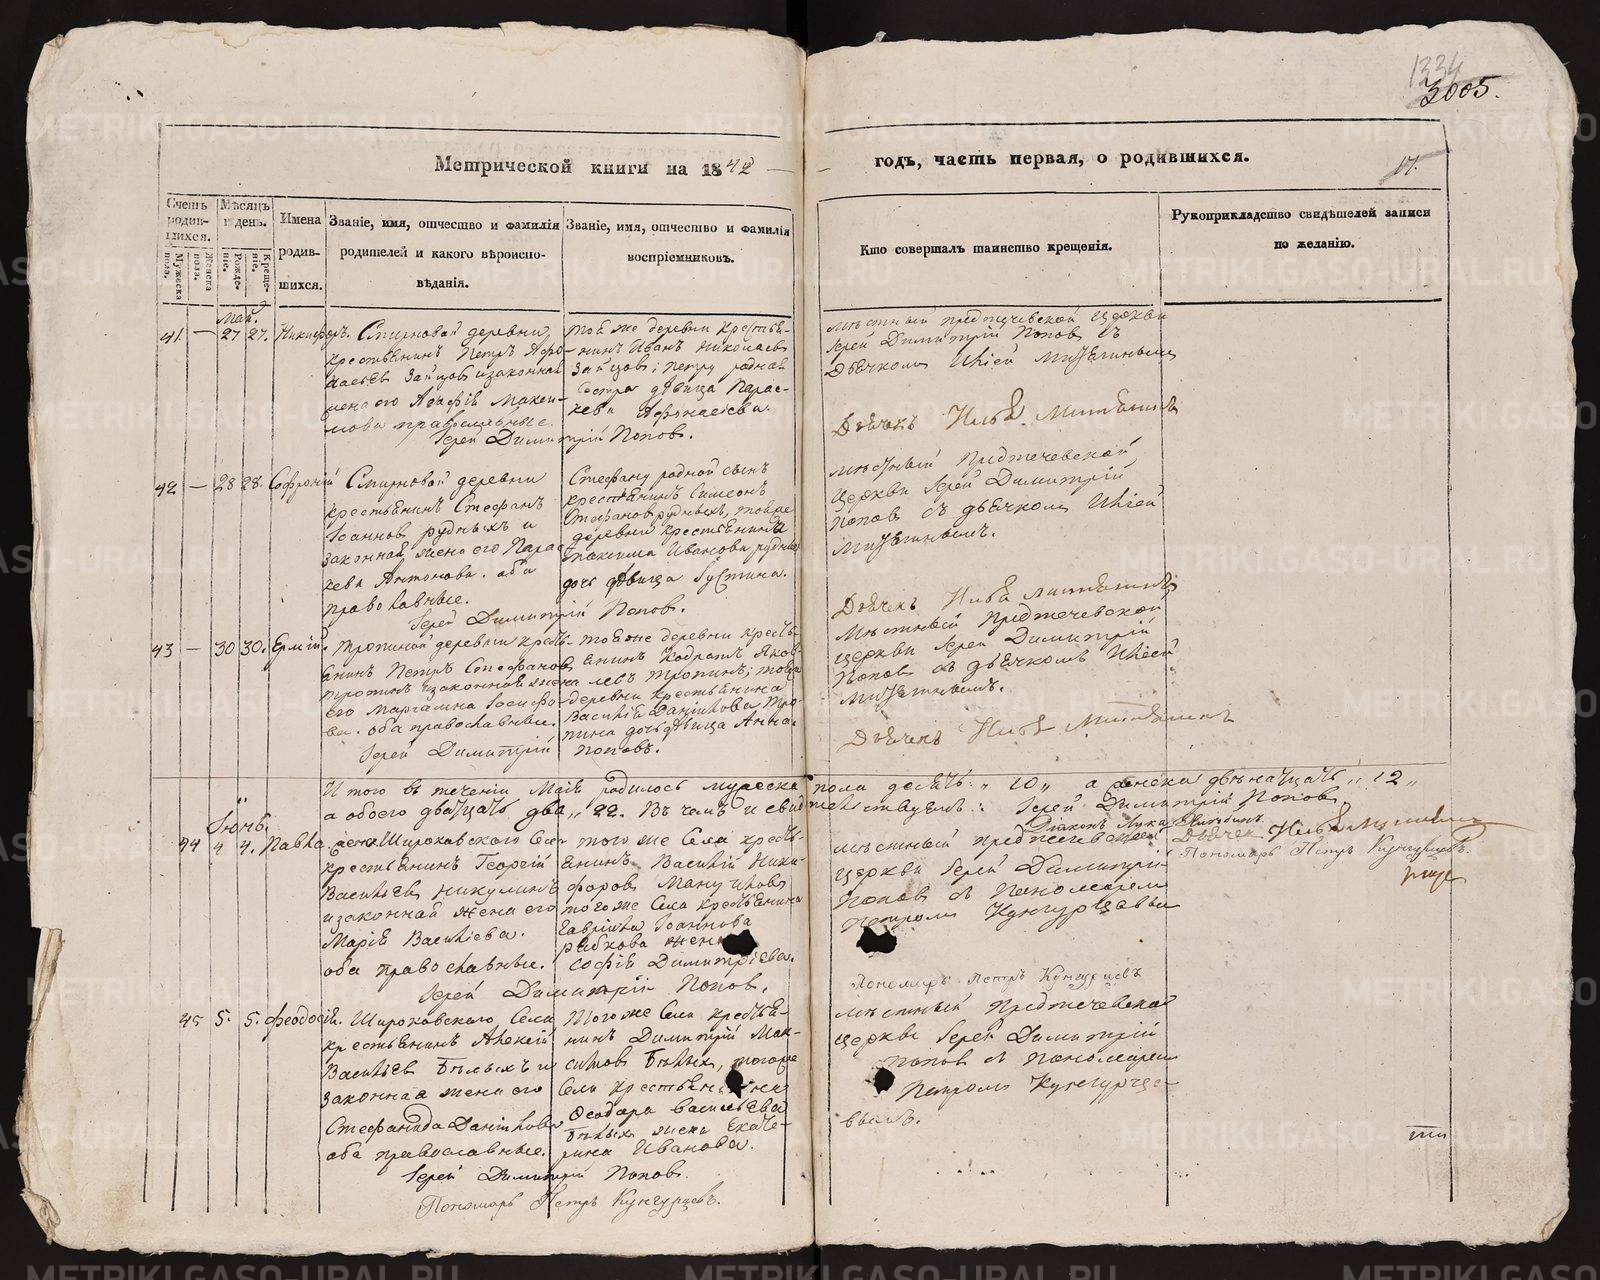 1334
3005.
Метрической книги на 1842
годъ, часть первая, о родившихся.
17.
Счетъ родившихся.
Мужеска полъ.
Женска полъ.
Мѣсяцъ и день.
Рожденіе.
Крещеніе.
Имена родившихся.
Званіе, имя, отчество и фамилія
родителей и какого вѣроиспо-
вѣданія.
Званіе, имя, отчество и фамилія
воспріемниковъ.
Кто совершалъ таинство крещенія.
Рукоприкладство свидѣтелей записи
по желанію.
Май.
41 — 27 27. Никифоръ.
Смирновой деревни
крестьянинъ Петръ Афо-
насьев Зайцов и законная
жена его Агафія Макси-
мова православные.
той же деревни крестья-
нинъ Иванъ Николаев
Зайцов; Петру родная
сестра дѣвица Парас-
кева Афонасіева.
Іерей Димитрій Попов.
мѣстный Предтечевской церкви
Іерей Димитрій Попов съ
Дьячком Иліей
Дьячекъ Илья
42 — 28 28. Софроній
Смирновой деревни
крестьянинъ Стефанъ
Іоаннов Рудныхъ и
законная жена его Парас-
кева Антонова. оба
православные.
Стефану родной сынъ
крестьянинъ Симеонъ
Стефанов Рудныхъ, той же
деревни крестьянина
Иванова Рудных
дочь дѣвица Іустина.
Іерей Димитрій Попов.
мѣстный Предтечевской
церкви Іерей Димитрій
Попов съ дьячком Иліей
Дьячекъ Илья
43 — 30 30. Ермій.
Тропиной деревни кресть-
янинъ Петръ Стефанов
Тропинъ и законная жена
его Марѳа Іосифо-
ва. оба православные.
той же деревни кресть-
янинъ Кодратъ Яков-
лев Тропинъ; той же
деревни крестьянина
Василія Данилова Тро-
пина дочь дѣвица Анна.
Іерей Димитрій Попов.
Мѣстный Предтечевской
церкви Іерей Димитрій
Попов съ дьячкомъ Иліей
Дьячекъ Илья
Итого въ теченіи Маія родилось мужеска пола десять „ 10 „ а женска двѣнатцать „ 12 „
а обоего дватцать два „ 22. Въ чемъ и свидѣтельствуемъ: Іерей Димитрій Попов
Діаконъ Лука
Дьячек Илья
Пономарь Петръ Кунгурцевъ.
Іюнь.
44 4 4. Павла.
Широковского Села
крестьянинъ Георгій
Васильев Никулинъ
и законная жена его
Марія Васильева.
оба православные.
того же Села кресть-
янинъ Василій Ники-
форов Мануилов
того же Села крестьянина
Гавріила Іоаннова
Рябкова жена
Софія Димитріева.
Іерей Димитрій Попов.
мѣстный Предтечевской
церкви Іерей Димитрій
Попов съ Пономарем
Петром Кунгурцевым
Пономарь Петръ Кунгурцевъ
45 5. 5. Феодосія.
Широковского Села
крестьянинъ Алексій
Васильев Бѣлыхъ и
законная жена его
Стефанида Данилова
оба православные.
Того же Села крестья-
нинъ Димитрій Мак-
симов Бѣлых, того же
Села крестьянина
Феодора Васильева
Бѣлых жена Екате-
рина Иванова.
Іерей Димитрій Попов.
Пономарь Петръ Кунгурцевъ.
мѣстный Предтечевской
церкви Іерей Димитрій
Попов съ Пономарем
Петром Кунгурце-
вымъ.